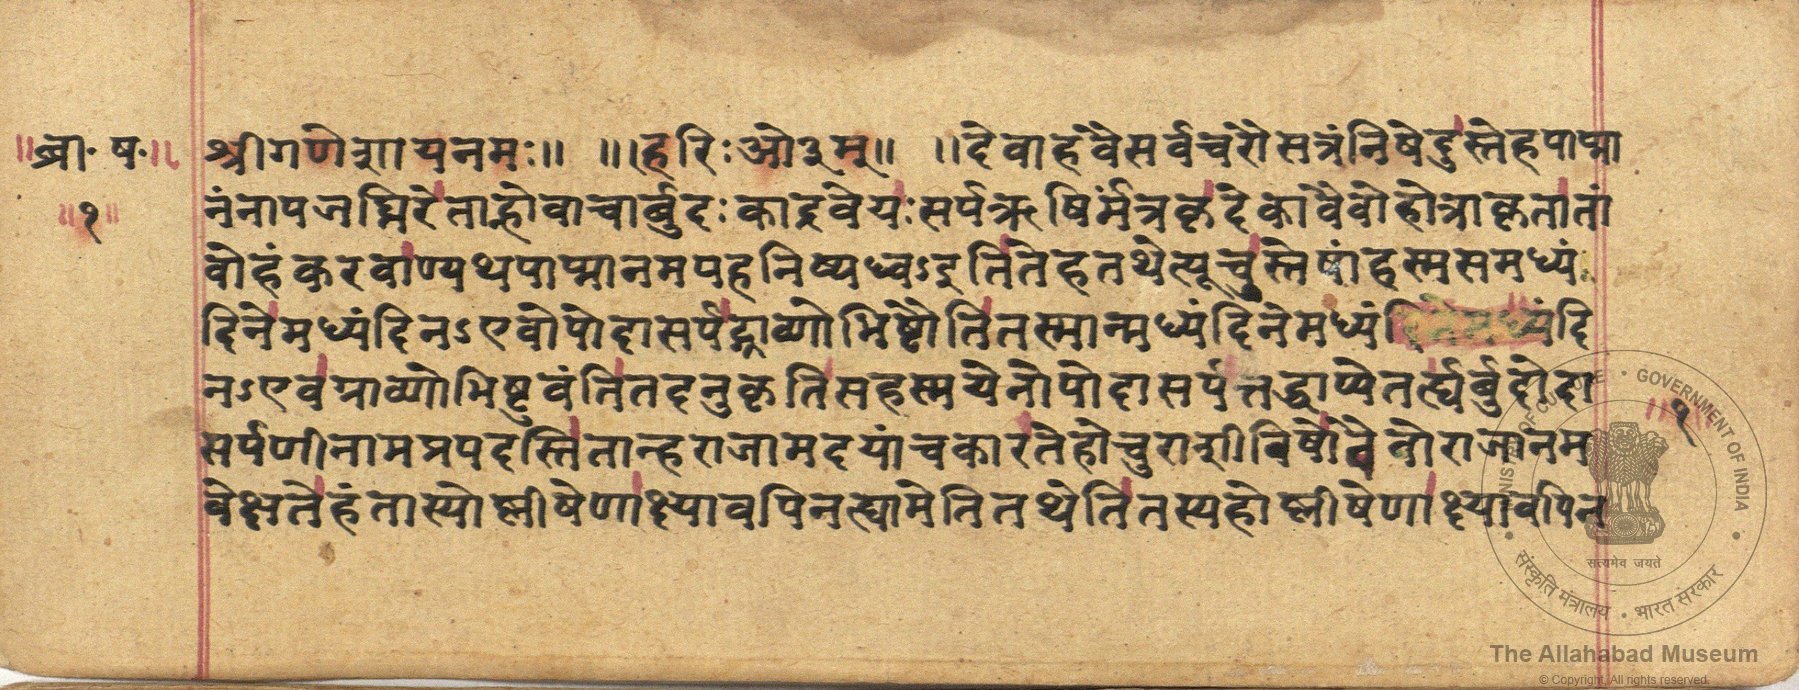 ॥ब्रा॰ ष॰॥ श्रीगणेशायनमः॥ ॥॥हरिःओ३म्॥ ॥देवाहंवैसर्वचरौसत्रंनिषेदुस्तेहपाप्मा
॥१॥ नंनापजघ्निरेताह्नोवाचार्बुदःकाद्रवेयःसर्पऋषिर्मंत्रकृदेकावैवोहोत्राकृतातां
वोहंकरवाण्यथपाप्मानमपहनिष्यध्वऽइतितेहतथेत्यूचुस्तेषांहस्मसमध्यं
दिनेमध्यंदिनऽएवोपोदासर्पद्ग्राव्णोभिष्टौतितस्मान्मध्यंदिनेमध्यंदि
नऽएवग्राव्णोभिष्टुवंतितदनुकृतिसहस्मयेनोपोदासर्पत्तद्धाप्येतर्ह्यर्बुदोदा
१
सर्पणीनामप्रपदस्तितान्हराजामदयांचकारतेहोचुराशीविषोवैनोराजानम
वेक्षतेहंतास्योष्णीषेणाक्ष्यावपिनत्यामेतितथेतितस्यहोष्णीषेणाक्ष्यावपिन
MINISTRY OF CULTURE • GOVERNMENT OF INDIA
सत्यमेव जयते
संस्कृति मंत्रालय • भारत सरकार
The Allahabad Museum
© Copyright, All rights reserved.